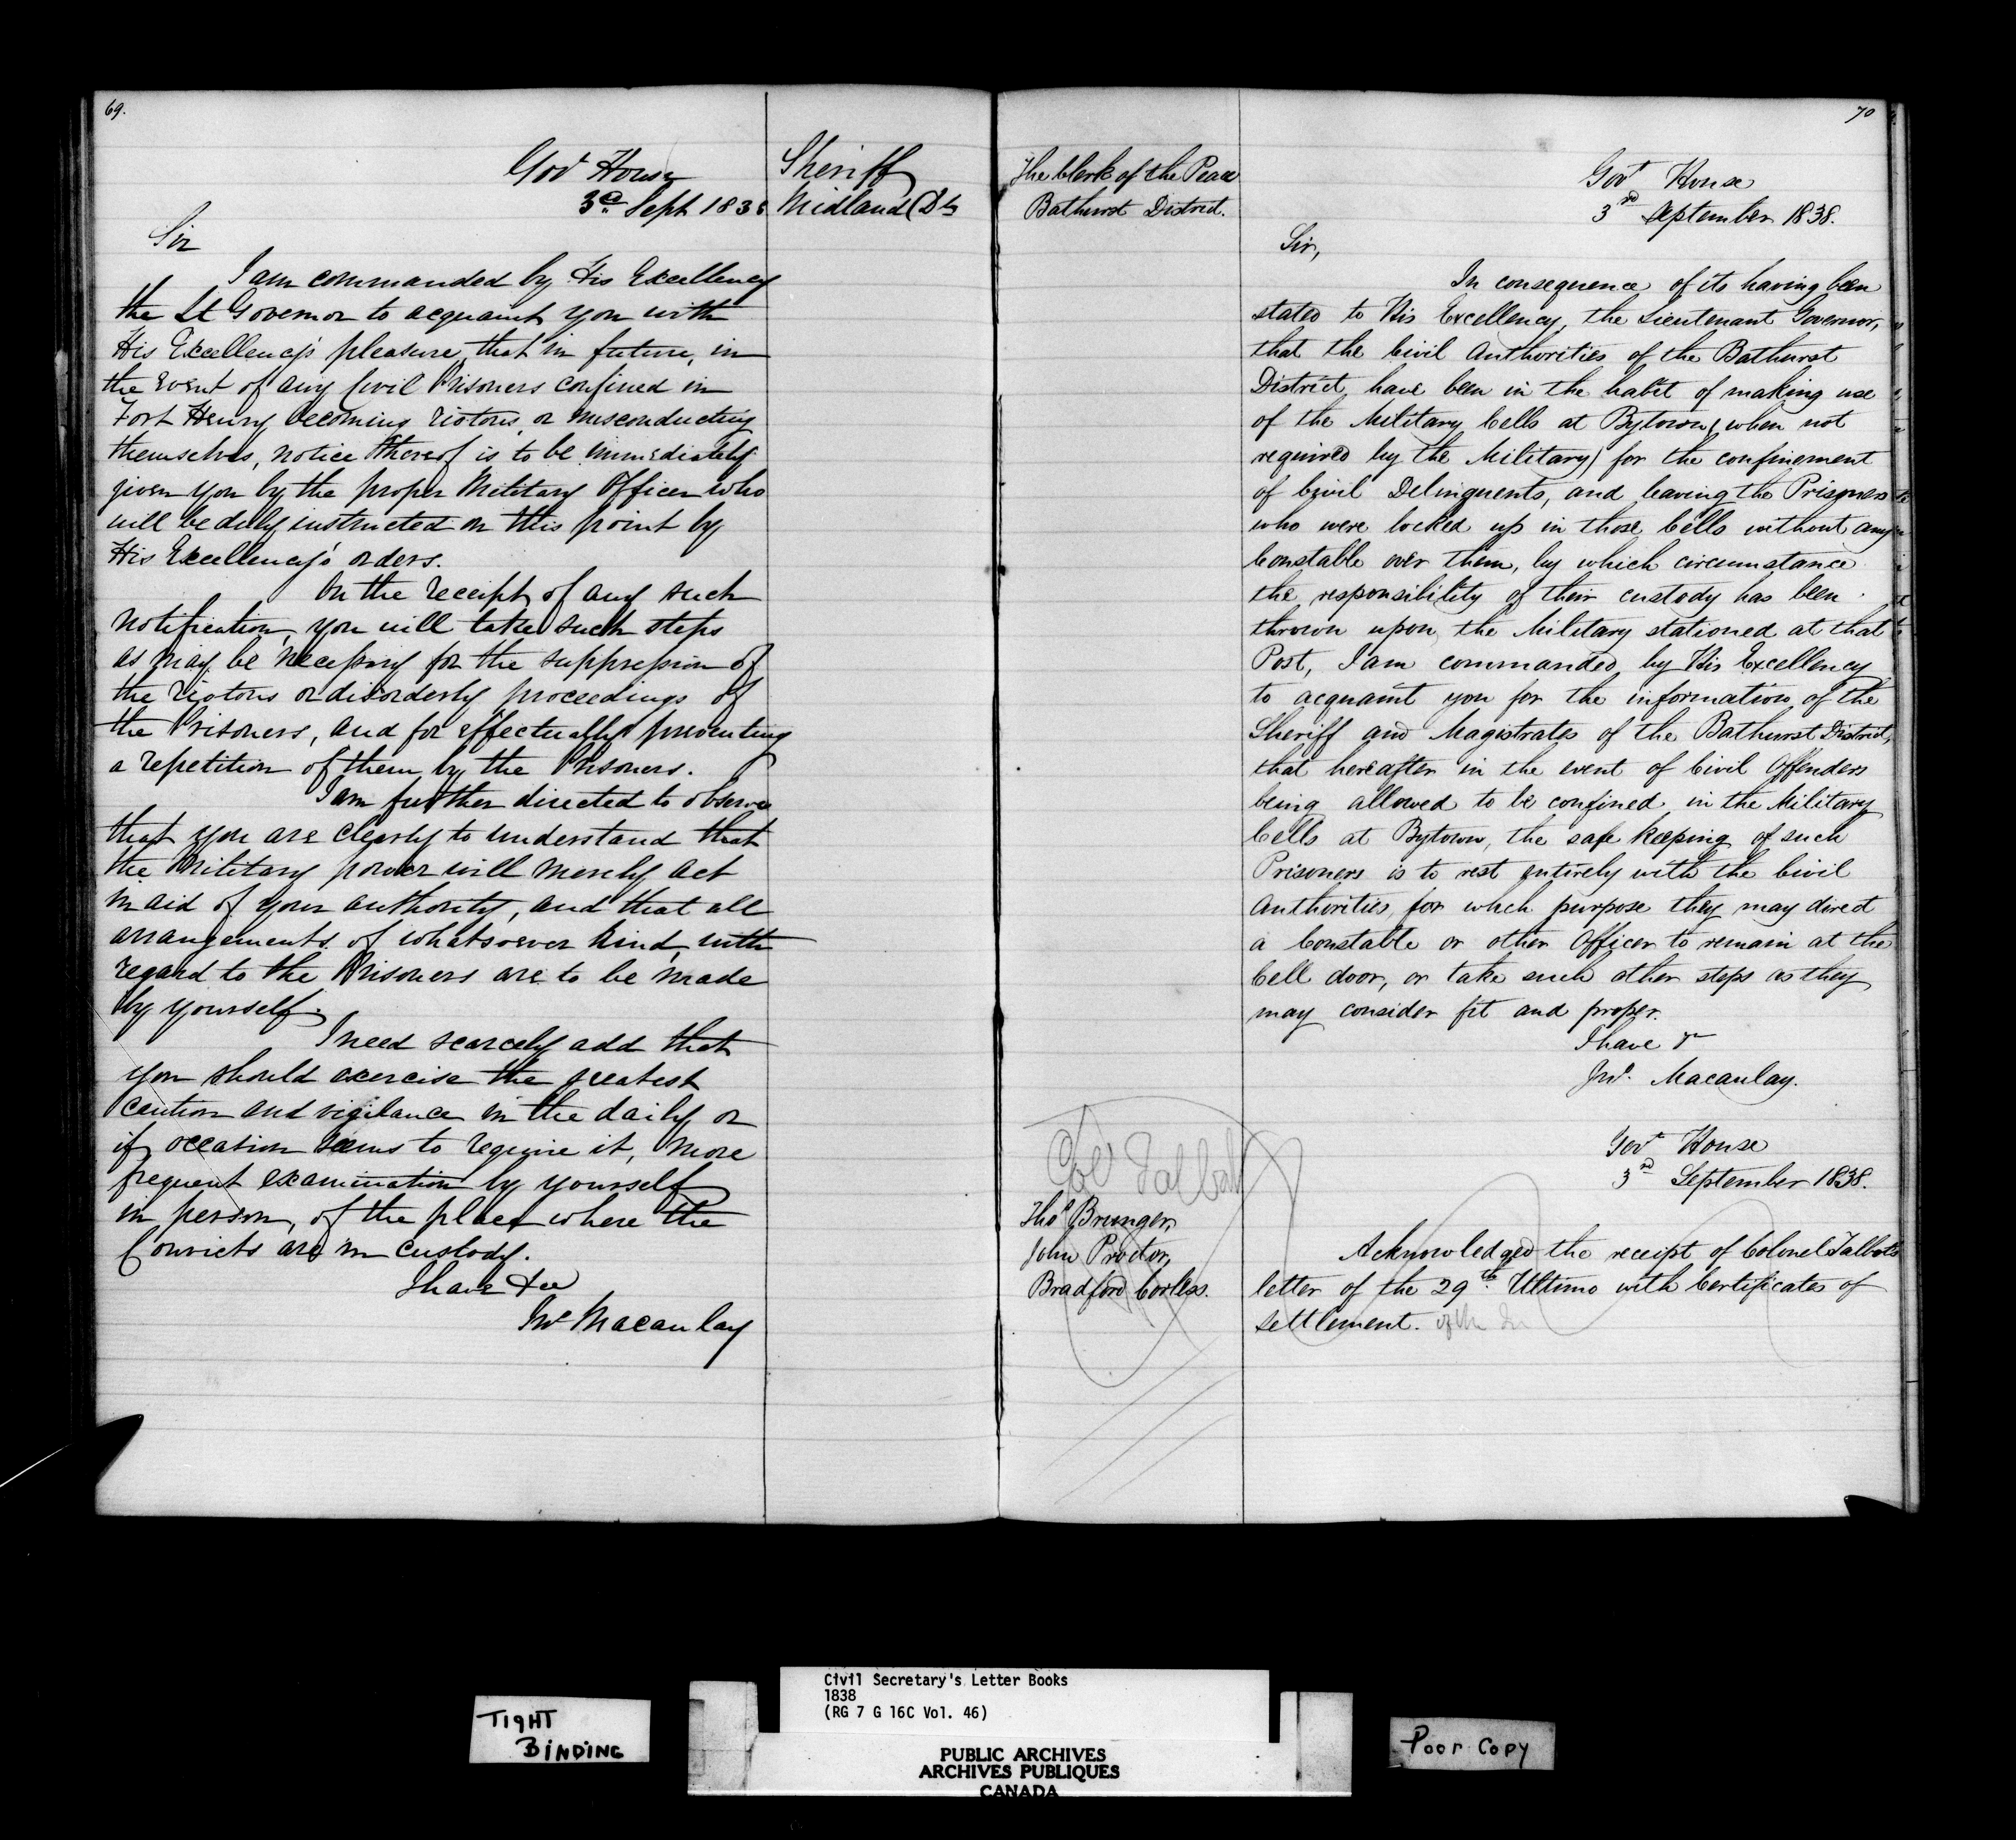 69.
Govt House
3d Sept 1838
Sheriff
Midland Dt
Sir
I am commanded by His Excellency
the Lt Governor to acquaint you with
His Excellency's pleasure, that in future, in
the Event of any Civil Prisoners confined in
Fort Henry becoming riotous, or misconducting
themselves, notice thereof is to be immediately
given you by the proper Military Officer who
will be duly instructed on this point by
His Excellency's orders.
On the receipt of any such
notification, you will take such steps
as may be necessary for the suppression of
the riotous or disorderly proceedings of
the Prisoners, and for effectually preventing
a repetition of them by the Prisoners.
I am further directed to observe
that you are clearly to understand that
the Military power will merely act
in aid of your authority, and that all
arrangements of whatsoever kind, with
regard to the Prisoners are to be made
by yourself.
I need scarcely add that
you should exercise the greatest
caution and vigilance in the daily or
if occasion seems to require it, more
frequent examination by yourself
in person, of the place where the
Convicts are in custody.
I have &c
Jno Macaulay
70
The Clerk of the Peace
Bathurst District.
Govt House
3rd September 1838.
Sir,
In consequence of its having been
stated to His Excellency, the Lieutenant Governor,
that the Civil Authorities of the Bathurst
District have been in the habit of making use
of the Military Cells at Bytown, (when not
required by the Military) for the confinement
of Civil Delinquents, and leaving the Prisoners
who were locked up in those Cells without any
Constable over them, by which circumstance
the responsibility of their custody has been
thrown upon the Military stationed at that
Post, I am commanded by His Excellency
to acquaint you for the information of the
Sheriff and Magistrates of the Bathurst District,
that hereafter in the event of Civil Offenders
being allowed to be confined in the Military
Cells at Bytown, the safe keeping of such
Prisoners is to rest entirely with the Civil
Authorities, for which purpose they may direct
a Constable or other Officer to remain at the
Cell door, or take such other steps as they
may consider fit and proper.
I have &
Jno. Macaulay.
Col Talbot
Thos Brunger,
John Proctor,
Bradford Corless.
Govt House
3rd September 1838.
Acknowledged the receipt of Colonel Talbot's
letter of the 29th Ultimo with Certificates of
settlement.
TIGHT
BINDING
Civil Secretary's Letter Books
1838
(RG 7 G 16C Vol. 46)
PUBLIC ARCHIVES
ARCHIVES PUBLIQUES
CANADA
Poor Copy